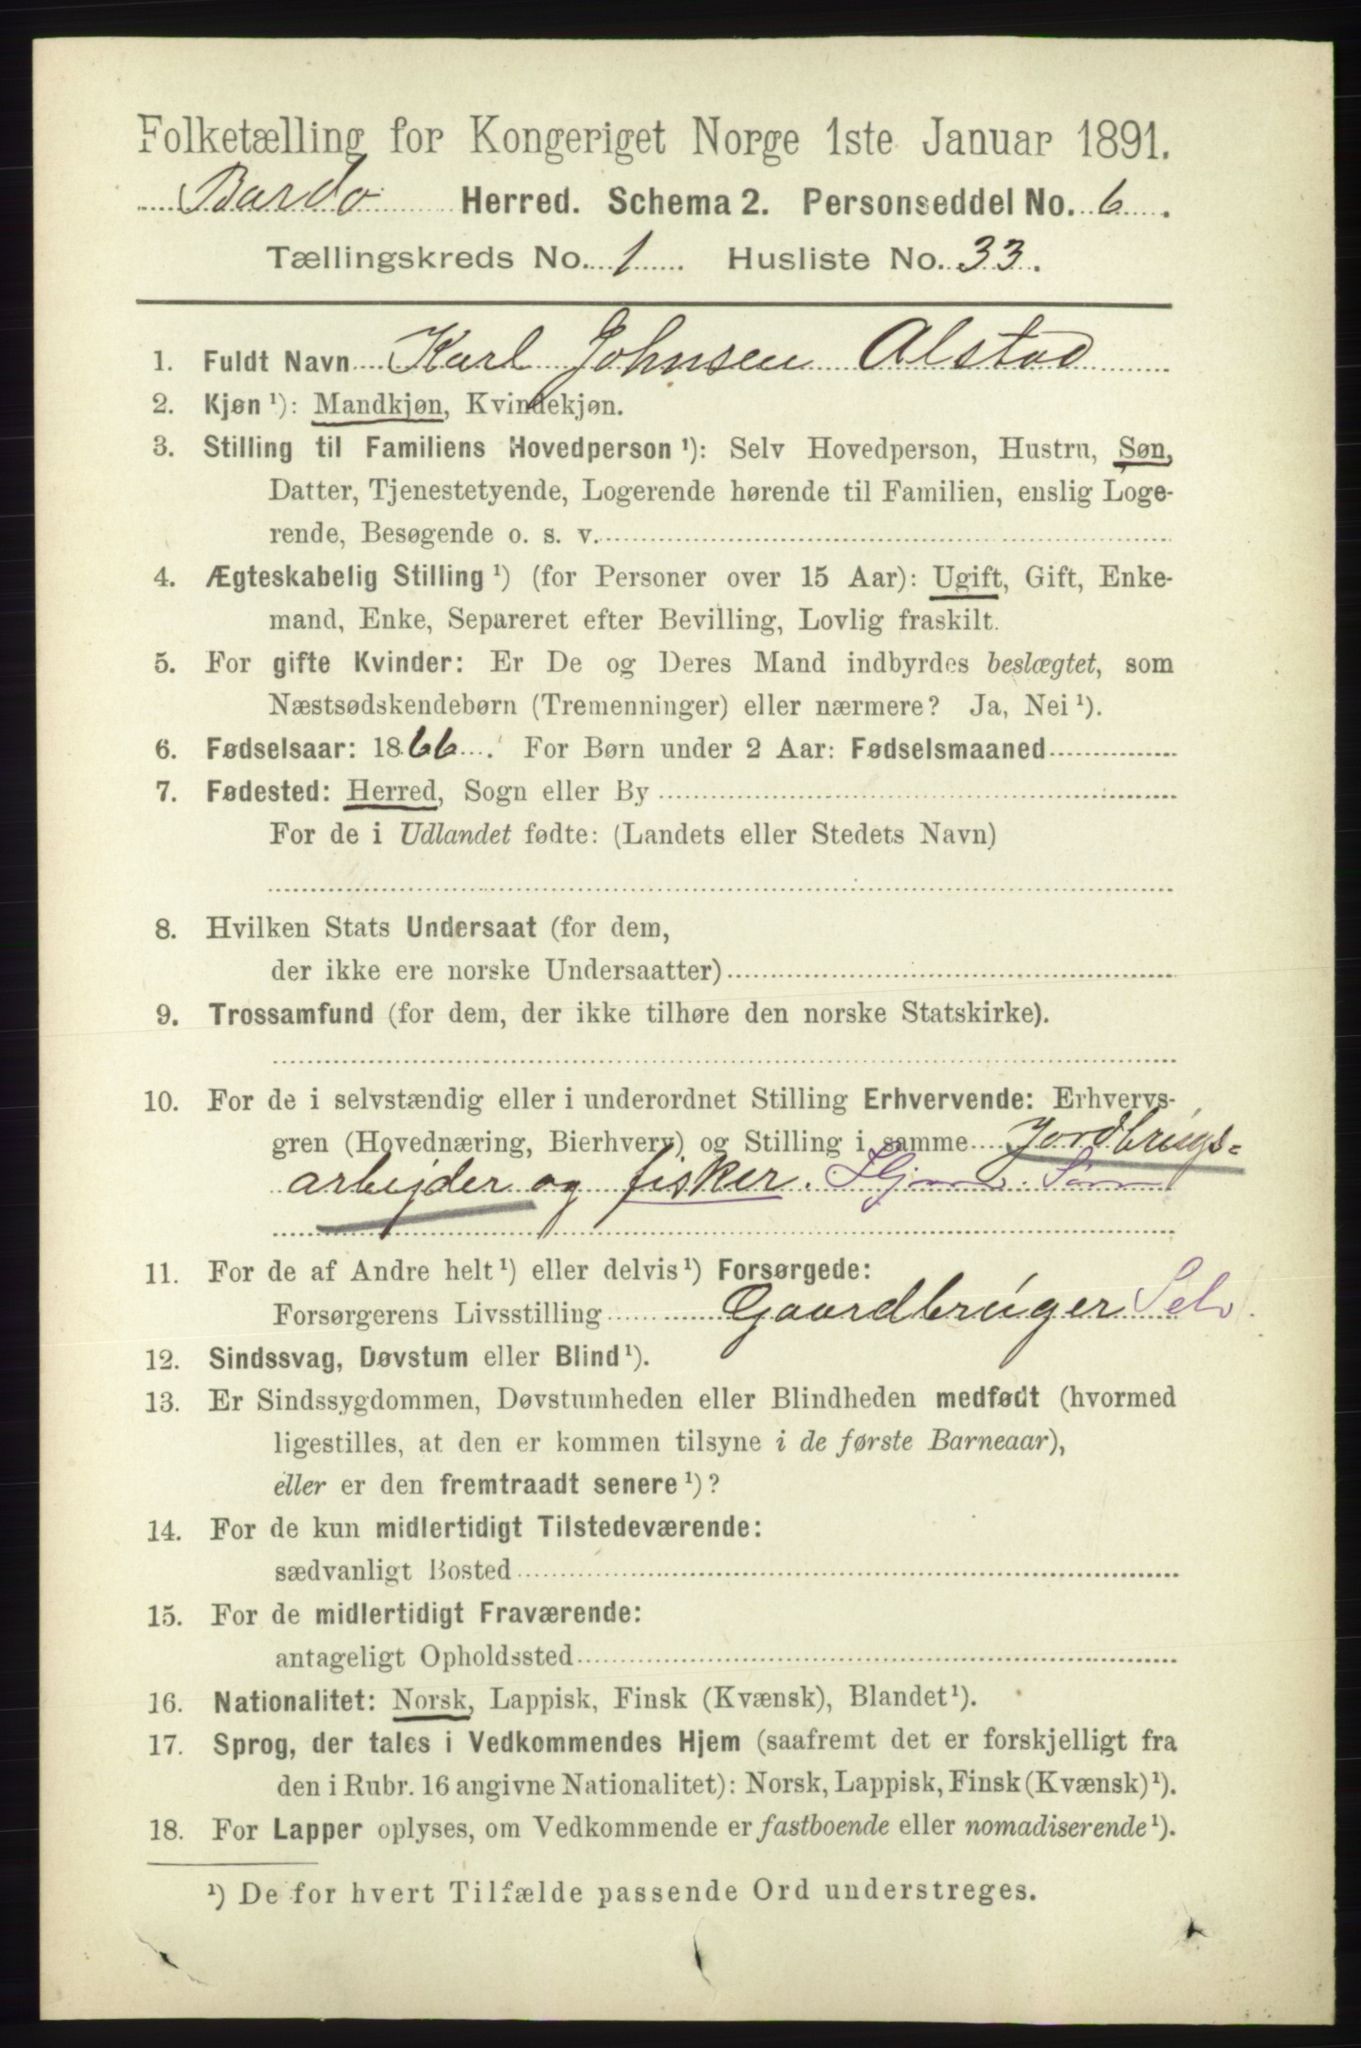 Folketælling for Kongeriget Norge 1ste Januar 1891.
Bardo Herred. Schema 2. Personseddel No. 6.
Tællingskreds No. 1 Husliste No. 33.
1. Fuldt Navn Karl Johnsen Alstad
2. Kjøn ¹): Mandkjøn, Kvindekjøn.
3. Stilling til Familiens Hovedperson ¹): Selv Hovedperson, Hustru, Søn,
Datter, Tjenestetyende, Logerende hørende til Familien, enslig Loge-
rende, Besøgende o. s. v.
4. Ægteskabelig Stilling ¹) (for Personer over 15 Aar): Ugift, Gift, Enke-
mand, Enke, Separeret efter Bevilling, Lovlig fraskilt.
5. For gifte Kvinder: Er De og Deres Mand indbyrdes beslægtet, som
Næstsødskendebørn (Tremenninger) eller nærmere? Ja, Nei ¹).
6. Fødselsaar: 1866. For Børn under 2 Aar: Fødselsmaaned
7. Fødested: Herred, Sogn eller By
For de i Udlandet fødte: (Landets eller Stedets Navn)
8. Hvilken Stats Undersaat (for dem,
der ikke ere norske Undersaatter)
9. Trossamfund (for dem, der ikke tilhøre den norske Statskirke).
10. For de i selvstændig eller i underordnet Stilling Erhvervende: Erhvervs-
gren (Hovednæring, Bierhverv) og Stilling i samme Jordbrugs=
arbejder og fisker. Hjmv. Søn
11. For de af Andre helt ¹) eller delvis ¹) Forsørgede:
Forsørgerens Livsstilling Gaardbruger Selv.
12. Sindssvag, Døvstum eller Blind ¹).
13. Er Sindssygdommen, Døvstumheden eller Blindheden medfødt (hvormed
ligestilles, at den er kommen tilsyne i de første Barneaar),
eller er den fremtraadt senere ¹)?
14. For de kun midlertidigt Tilstedeværende:
sædvanligt Bosted
15. For de midlertidigt Fraværende:
antageligt Opholdssted
16. Nationalitet: Norsk, Lappisk, Finsk (Kvænsk), Blandet ¹).
17. Sprog, der tales i Vedkommendes Hjem (saafremt det er forskjelligt fra
den i Rubr. 16 angivne Nationalitet): Norsk, Lappisk, Finsk (Kvænsk) ¹).
18. For Lapper oplyses, om Vedkommende er fastboende eller nomadiserende ¹).
¹) De for hvert Tilfælde passende Ord understreges.